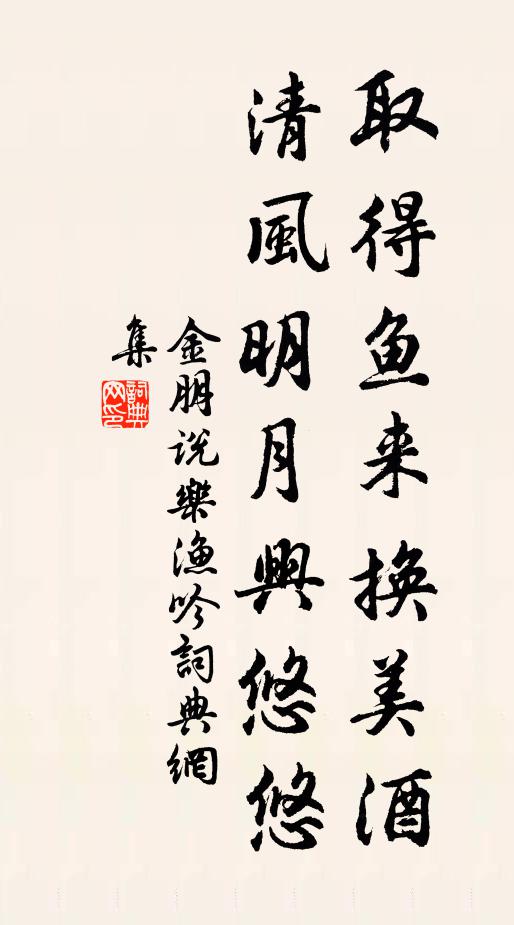 取得鱼来换美酒
清風明月興悠悠
金朋说樂漁吟詞典網
集
詞典
网印